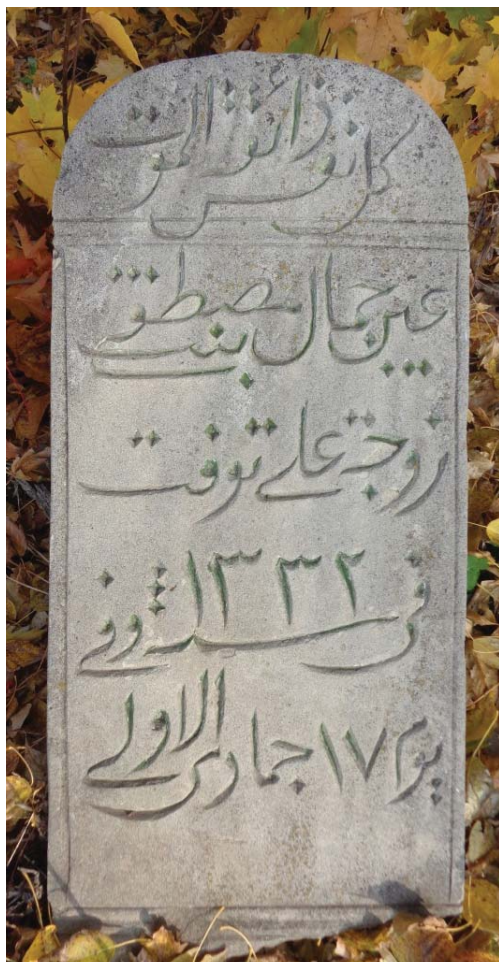 كل نفس ذائقة الموت
عين جمال بنت مصطفى
زوجة علي توفت
في سنة ١٣٣٢ وفي
يوم ١٧ جمادى الاولى